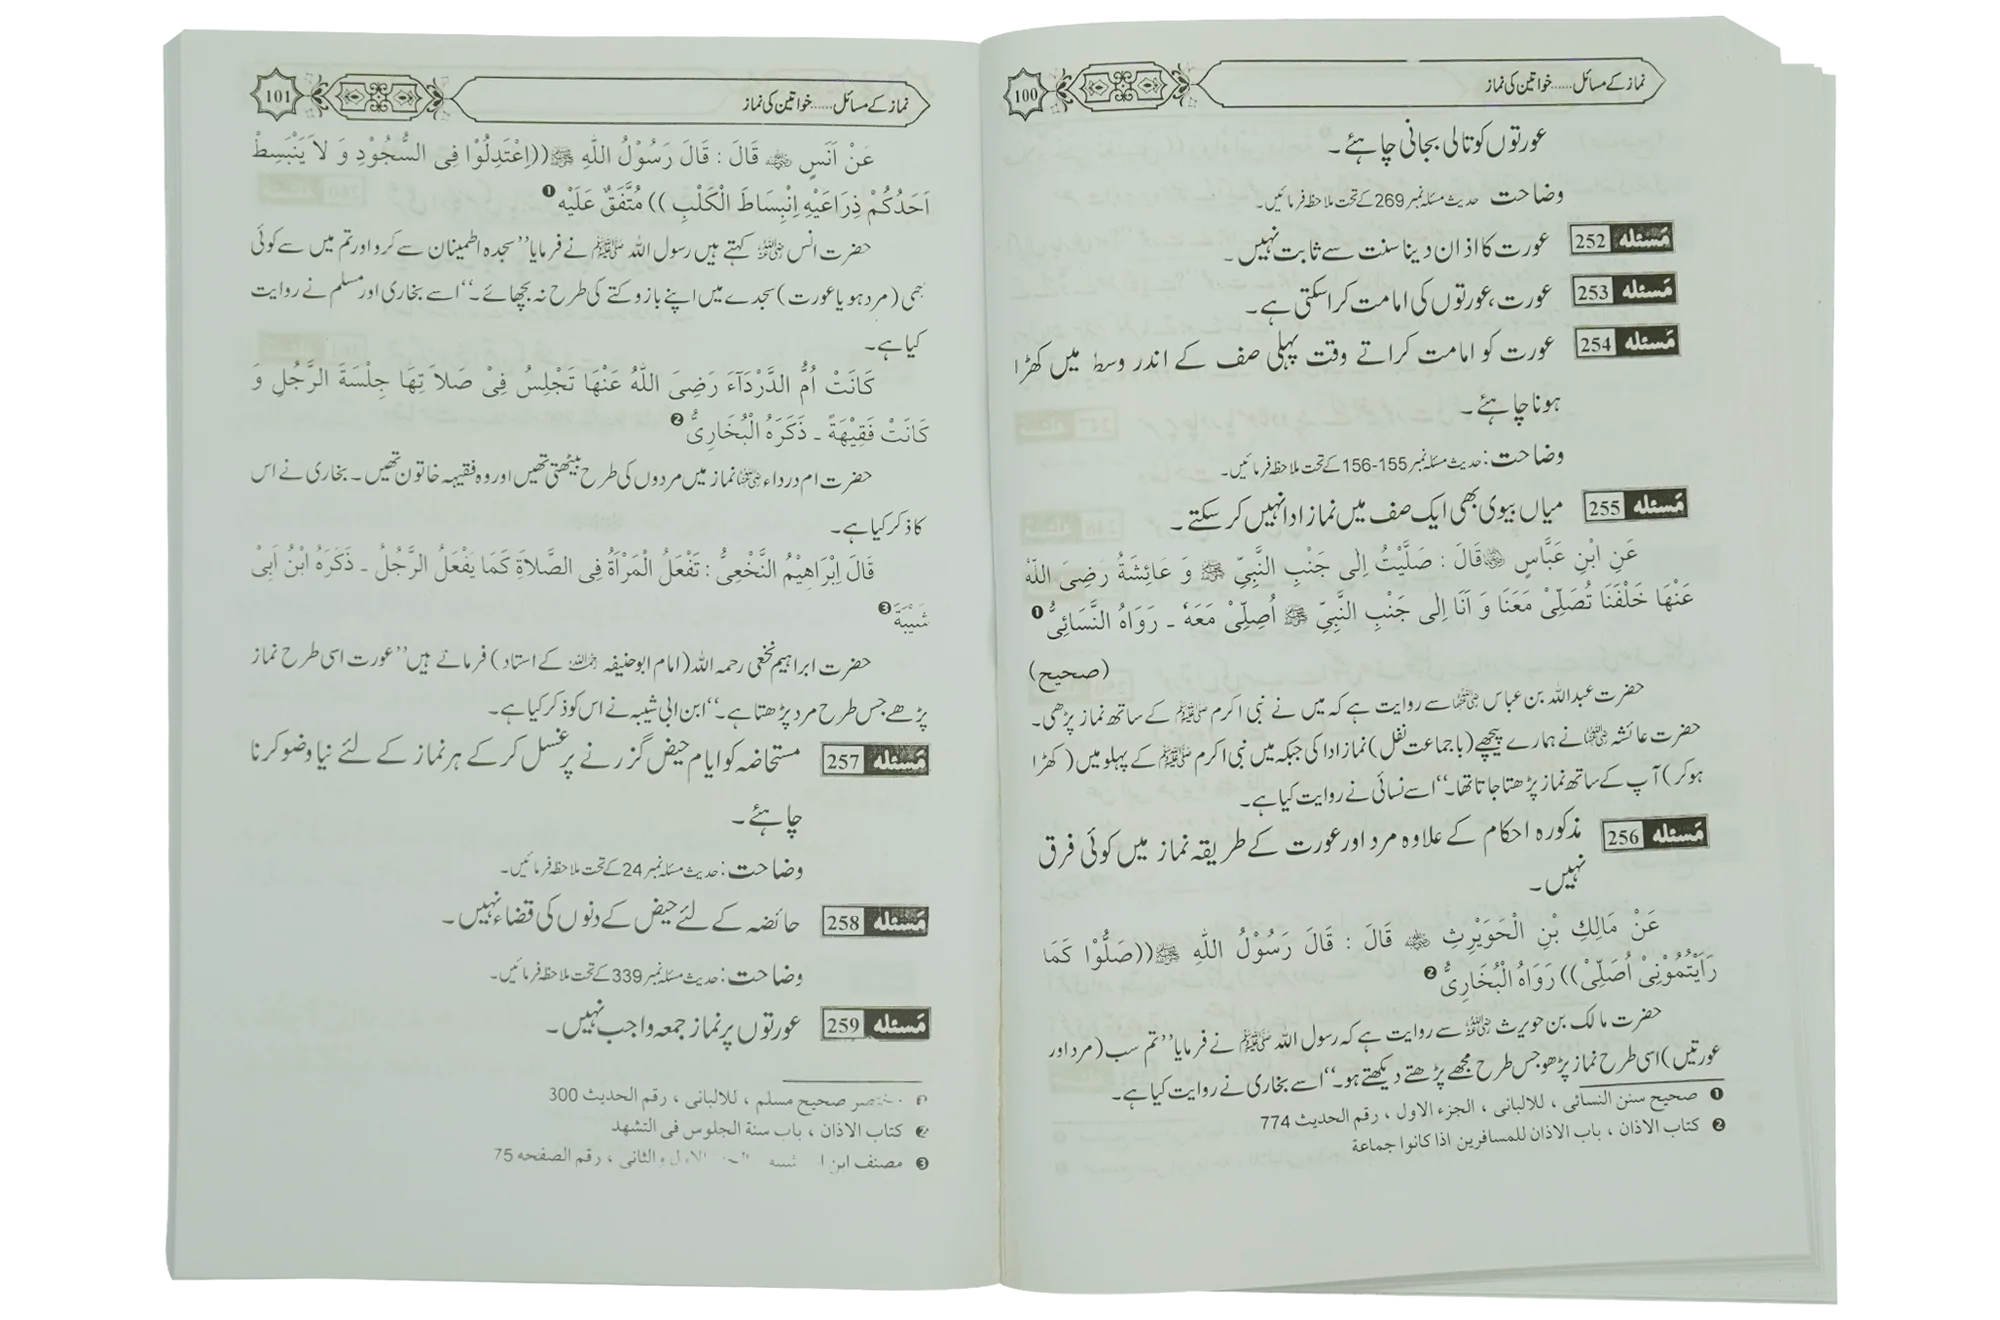 نماز کے مسائل......خواتین کی نماز
100
عورتوں کو تالی بجانی چاہئے۔
وضاحت حدیث مسئلہ نمبر 269 کے تحت ملاحظہ فرمائیں۔
مَسئله 252 عورت کا اذان دینا سنت سے ثابت نہیں۔
مَسئله 253 عورت، عورتوں کی امامت کرا سکتی ہے۔
مَسئله 254 عورت کو امامت کراتے وقت پہلی صف کے اندر وسط میں کھڑا
ہونا چاہئے۔
وضاحت: حدیث مسئلہ نمبر 155-156 کے تحت ملاحظہ فرمائیں۔
مَسئله 255 میاں بیوی بھی ایک صف میں نماز ادا نہیں کر سکتے۔
عَنِ ابْنِ عَبَّاسٍ ﷺ قَالَ : صَلَّيْتُ اِلٰى جَنْبِ النَّبِيِّ ﷺ وَ عَائِشَةُ رَضِىَ اللّٰهُ
عَنْهَا خَلْفَنَا تُصَلِّىْ مَعَنَا وَ اَنَا اِلٰى جَنْبِ النَّبِيِّ ﷺ اُصَلِّىْ مَعَهٗ ۔ رَوَاهُ النَّسَائِىُّ ❶
(صحيح)
حضرت عبداللہ بن عباس رضی اللہ عنہما سے روایت ہے کہ میں نے نبی اکرم ﷺ کے ساتھ نماز پڑھی۔
حضرت عائشہ رضی اللہ عنہا نے ہمارے پیچھے (با جماعت نفل) نماز ادا کی جبکہ میں نبی اکرم ﷺ کے پہلو میں (کھڑا
ہو کر) آپ کے ساتھ نماز پڑھتا جاتا تھا۔‘‘ اسے نسائی نے روایت کیا ہے۔
مَسئله 256 مذکورہ احکام کے علاوہ مرد اور عورت کے طریقہ نماز میں کوئی فرق
نہیں۔
عَنْ مَالِكِ بْنِ الْحَوَيْرِثِ رضی اللہ عنہ قَالَ : قَالَ رَسُوْلُ اللّٰهِ ﷺ ((صَلُّوْا كَمَا
رَاَيْتُمُوْنِىْ اُصَلِّىْ)) رَوَاهُ الْبُخَارِىُّ ❷
حضرت مالک بن حویرث رضی اللہ عنہ سے روایت ہے کہ رسول اللہ ﷺ نے فرمایا ’’تم سب (مرد اور
عورتیں) اسی طرح نماز پڑھو جس طرح مجھے پڑھتے دیکھتے ہو۔‘‘ اسے بخاری نے روایت کیا ہے۔
❶ صحيح سنن النسائى ، للالبانى ، الجزء الاول ، رقم الحديث 774
❷ كتاب الاذان ، باب الاذان للمسافرين اذا كانوا جماعة
نماز کے مسائل......خواتین کی نماز
101
عَنْ اَنَسٍ رضی اللہ عنہ قَالَ : قَالَ رَسُوْلُ اللّٰهِ ﷺ ((اِعْتَدِلُوْا فِى السُّجُوْدِ وَ لاَ يَنْبَسِطْ
اَحَدُكُمْ ذِرَاعَيْهِ اِنْبِسَاطَ الْكَلْبِ )) مُتَّفَقٌ عَلَيْهِ ❶
حضرت انس رضی اللہ عنہ کہتے ہیں رسول اللہ ﷺ نے فرمایا ’’سجدہ اطمینان سے کرو اور تم میں سے کوئی
بھی (مرد ہو یا عورت) سجدے میں اپنے بازو کتے کی طرح نہ بچھائے۔‘‘ اسے بخاری اور مسلم نے روایت
کیا ہے۔
كَانَتْ اُمُّ الدَّرْدَآءَ رَضِىَ اللّٰهُ عَنْهَا تَجْلِسُ فِىْ صَلاَ تِهَا جِلْسَةَ الرَّجُلِ وَ
كَانَتْ فَقِيْهَةً ۔ ذَكَرَهُ الْبُخَارِىُّ ❷
حضرت ام درداء رضی اللہ عنہا نماز میں مردوں کی طرح بیٹھتی تھیں اور وہ فقیہہ خاتون تھیں۔ بخاری نے اس
کا ذکر کیا ہے۔
قَالَ اِبْرَاهِيْمُ النَّخْعِىُّ : تَفْعَلُ الْمَرْاَةُ فِى الصَّلاَةِ كَمَا يَفْعَلُ الرَّجُلُ ۔ ذَكَرَهُ ابْنُ اَبِىْ
شَيْبَةَ ❸
حضرت ابراہیم نخعی رحمہ اللہ (امام ابو حنیفہ رحمہ اللہ کے استاد) فرماتے ہیں ’’عورت اسی طرح نماز
پڑھے جس طرح مرد پڑھتا ہے۔‘‘ ابن ابی شیبہ نے اس کو ذکر کیا ہے۔
مَسئله 257 مستحاضہ کو ایام حیض گزرنے پر غسل کر کے ہر نماز کے لئے نیا وضو کرنا
چاہئے۔
وضاحت: حدیث مسئلہ نمبر 24 کے تحت ملاحظہ فرمائیں۔
مَسئله 258 حائضہ کے لئے حیض کے دنوں کی قضاء نہیں۔
وضاحت: حدیث مسئلہ نمبر 339 کے تحت ملاحظہ فرمائیں۔
مَسئله 259 عورتوں پر نماز جمعہ واجب نہیں۔
❶ مختصر صحيح مسلم ، للالبانى ، رقم الحديث 300
❷ كتاب الاذان ، باب سنة الجلوس فى التشهد
❸ مصنف ابن ابى شيبه ، الجزء الاول والثانى ، رقم الصفحه 75